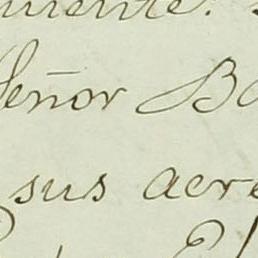 mente.
Señor Ba
sus acre